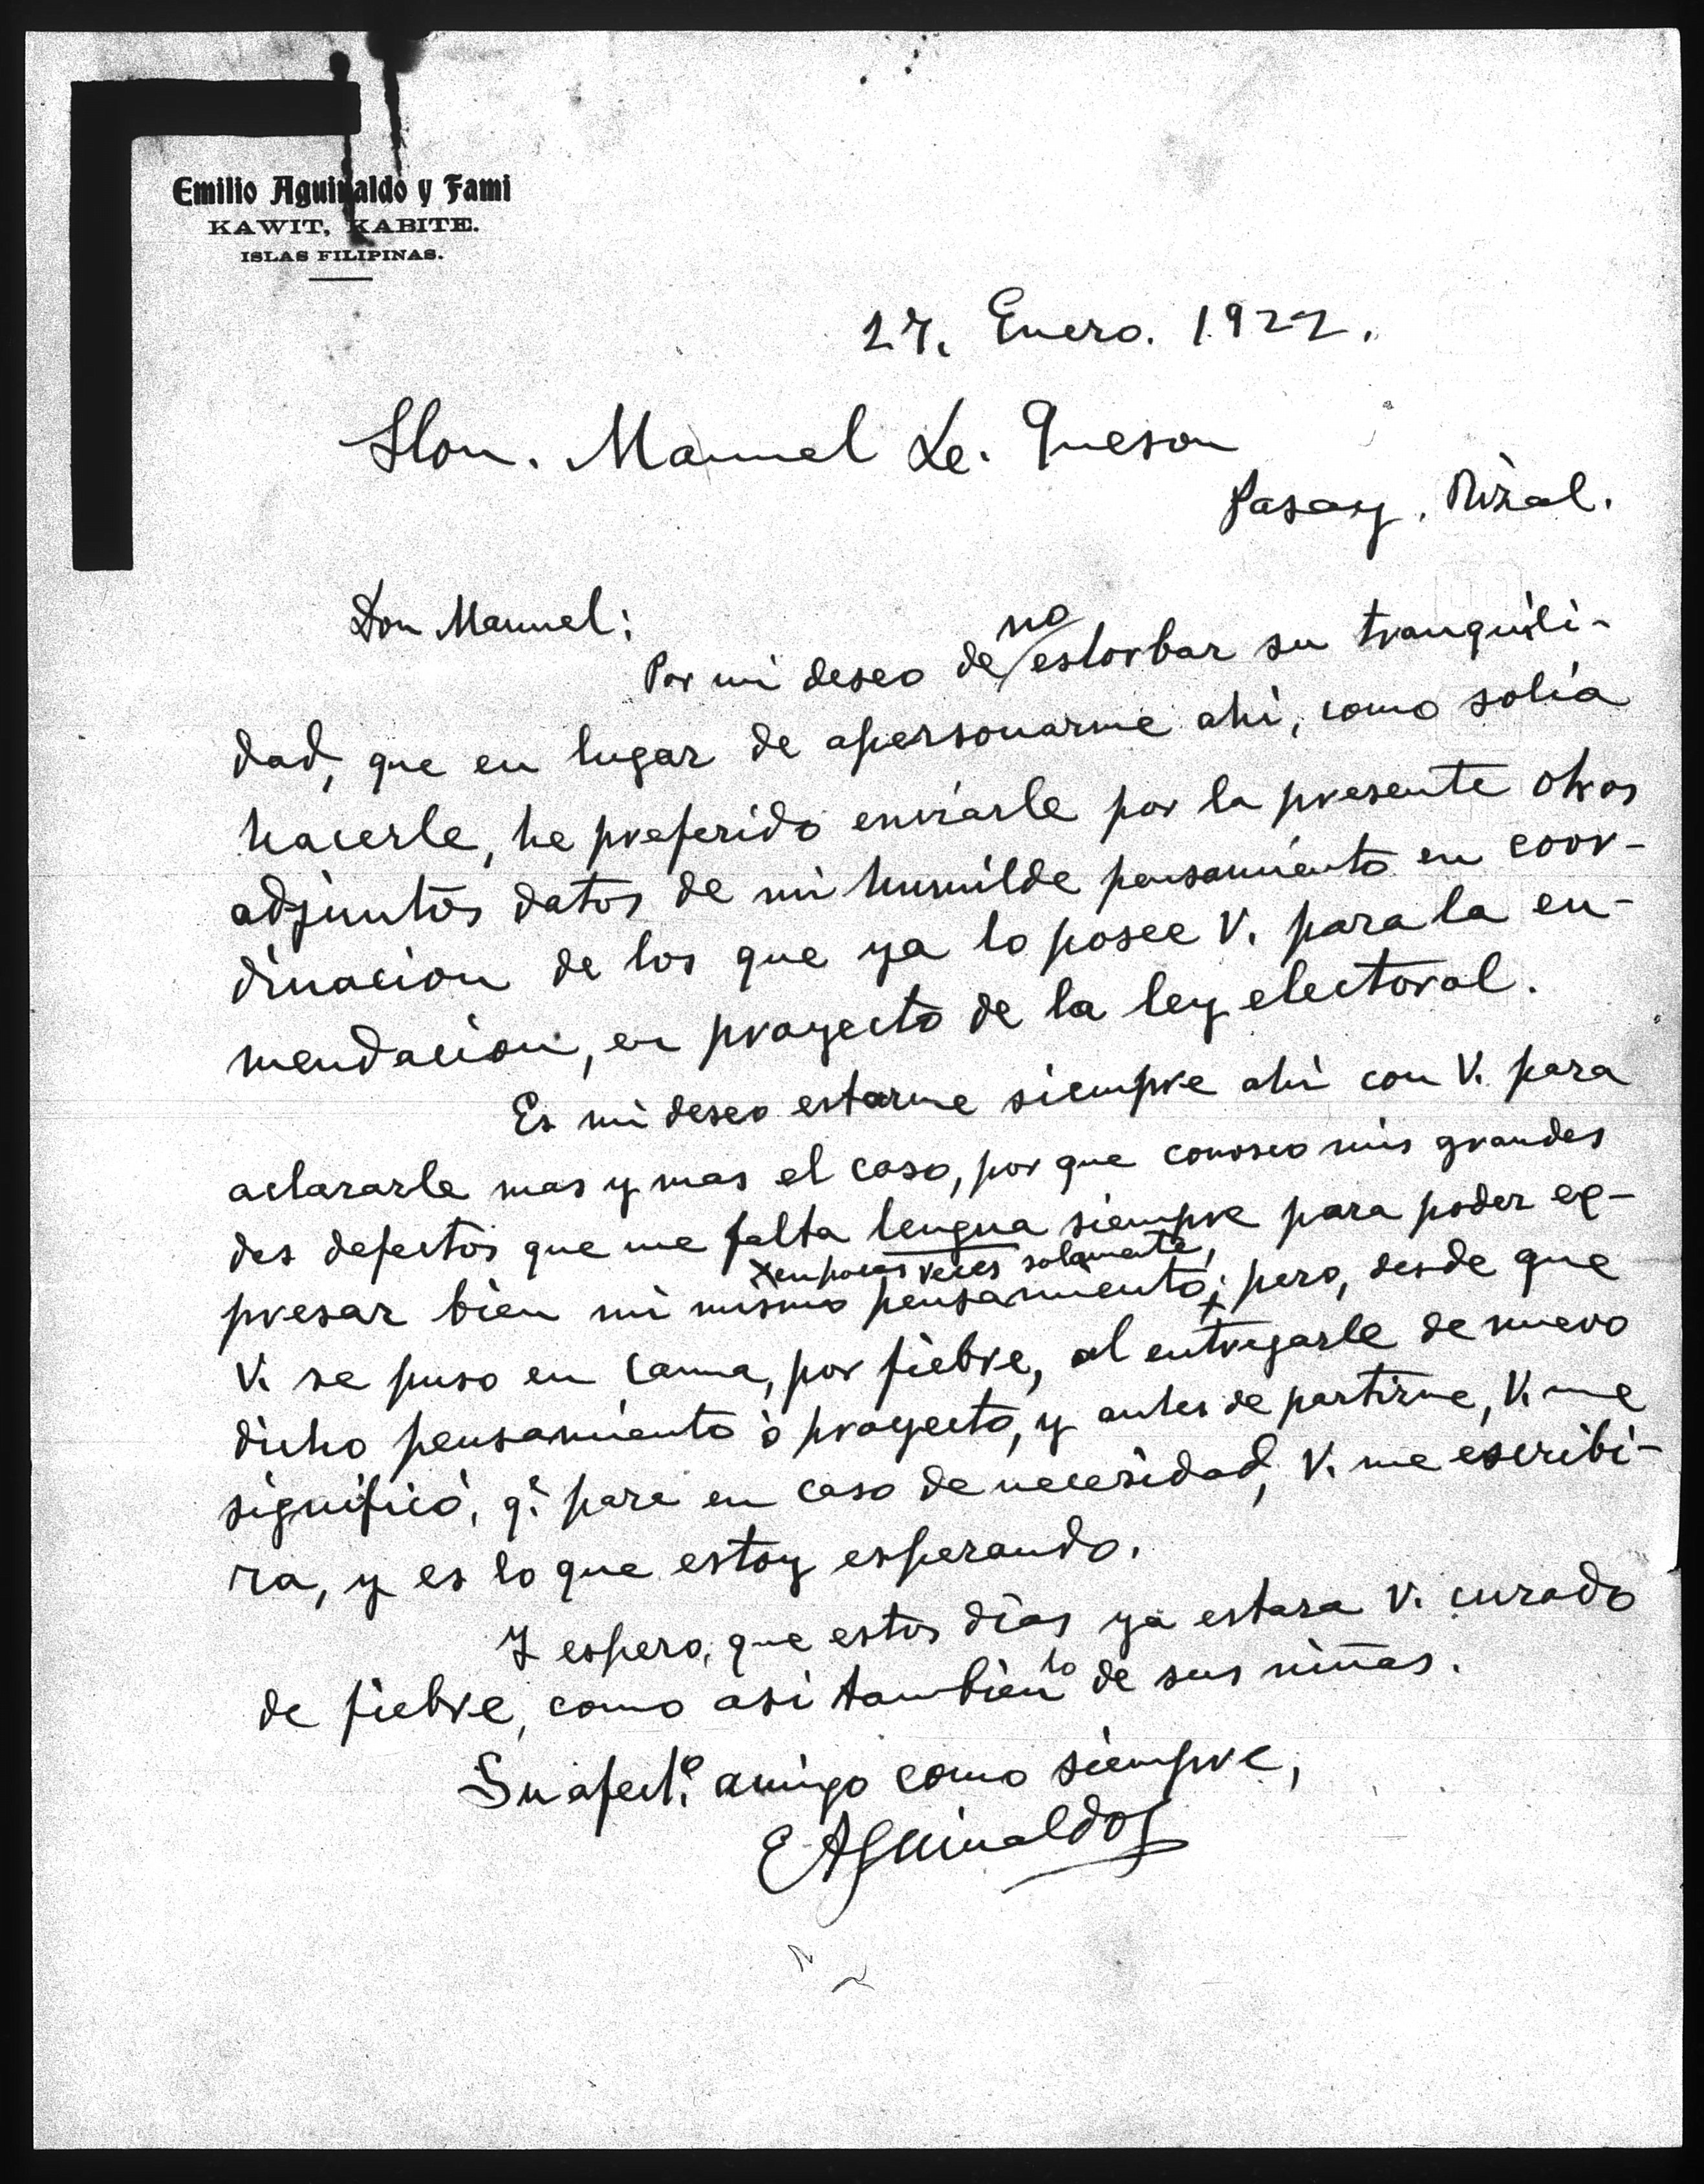 Emilio Aguinaldo y Fami
KAWIT, KABITE.
ISLAS FILIPINAS.
27. Enero. 1922.
Hon. Manuel L. Queson
Pasay, Rizal.
Don Manuel:
no
Por mi deseo de/estorbar su tranquili-
dad, que en lugar de apersonarme ahi, como solia
hacerle, he preferido enviarle por la presente otros
adjuntos datos de mi humilde pensamiento en coor-
dinacion de los que ya lo posee V. para la en-
mendacion, en proyecto de la ley electoral.
Es mi deseo estarme siempre ahi con V. para
aclararle mas y mas el caso, por que conosco mis grandes
des defectos que me falta lengua siempre para poder ex-
x en pocas veces solamente,
presar bien mi mismo pensamiento; x pero, desde que
V. se puso en cama, por fiebre, al entregarle de nuevo
dicho pensamiento ò proyecto, y antes de partirme, V. me
significó, q. para en caso de necesidad, V. me escribi-
ra, y es lo que estoy esperando.
Y espero, que estos dias ya estara V. curado
de fiebre, como asi tambien lo de sus niñas.
Su afect.º amigo como siempre,
E Aguinaldo